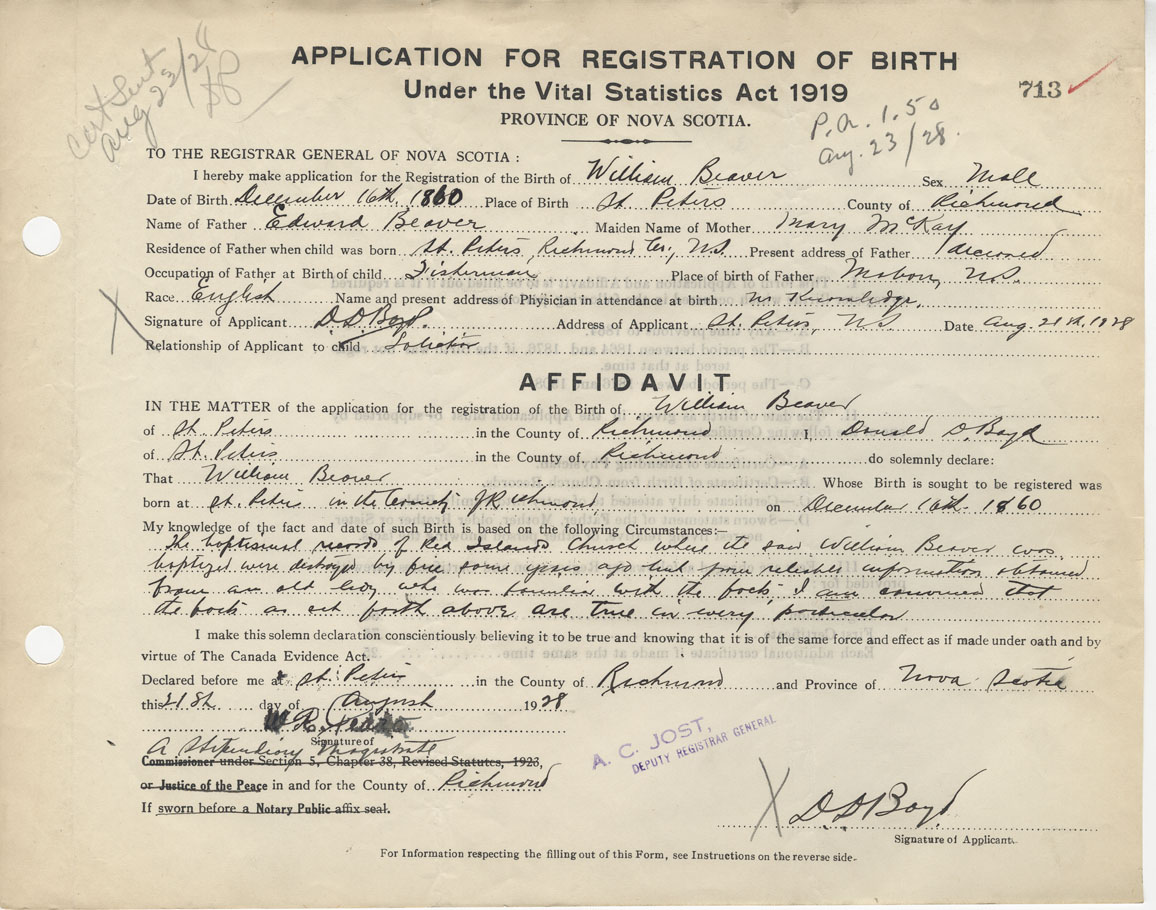 Cert Sent
Aug 23/28
APPLICATION FOR REGISTRATION OF BIRTH
Under the Vital Statistics Act 1919
713
PROVINCE OF NOVA SCOTIA.
P.a. 1.50
Aug. 23/28.
TO THE REGISTRAR GENERAL OF NOVA SCOTIA :
I hereby make application for the Registration of the Birth of William Beaver Sex Male
Date of Birth December 16th, 1860 Place of Birth St. Peters County of Richmond
Name of Father Edward Beaver Maiden Name of Mother Mary McKay
Residence of Father when child was born St. Peters, Richmond Co., N.S. Present address of Father deceased
Occupation of Father at Birth of child Fisherman Place of birth of Father Mabou, N.S.
Race English Name and present address of Physician in attendance at birth no Knowledge.
Signature of Applicant D.D Boyd. Address of Applicant St. Peters, N.S. Date Aug. 21st, 1928
Relationship of Applicant to child Solicitor
AFFIDAVIT
IN THE MATTER of the application for the registration of the Birth of William Beaver
of St. Peters in the County of Richmond I, Donald D. Boyd
of St. Peters in the County of Richmond do solemnly declare:
That William Beaver Whose Birth is sought to be registered was
born at St. Peters in the County of Richmond on December 16th 1860
My knowledge of the fact and date of such Birth is based on the following Circumstances:—
The baptismal records of Red Islands Church where the said William Beaver was
baptized were destroyed by fire some years ago but from reliable information obtained
from an old lady who was familiar with the facts, I am convinced that
the facts as set forth above are true in every particular
I make this solemn declaration conscientiously believing it to be true and knowing that it is of the same force and effect as if made under oath and by
virtue of The Canada Evidence Act.
Declared before me at St. Peters in the County of Richmond and Province of Nova Scotia
this 21st day of August 1928
W R
Signature of
A Stipendiary Magistrate
Commissioner under Section 5, Chapter 38, Revised Statutes, 1923,
or Justice of the Peace in and for the County of Richmond
If sworn before a Notary Public affix seal.
A. C. JOST,
DEPUTY REGISTRAR GENERAL
D.D Boyd
Signature of Applicant.
For Information respecting the filling out of this Form, see Instructions on the reverse side.